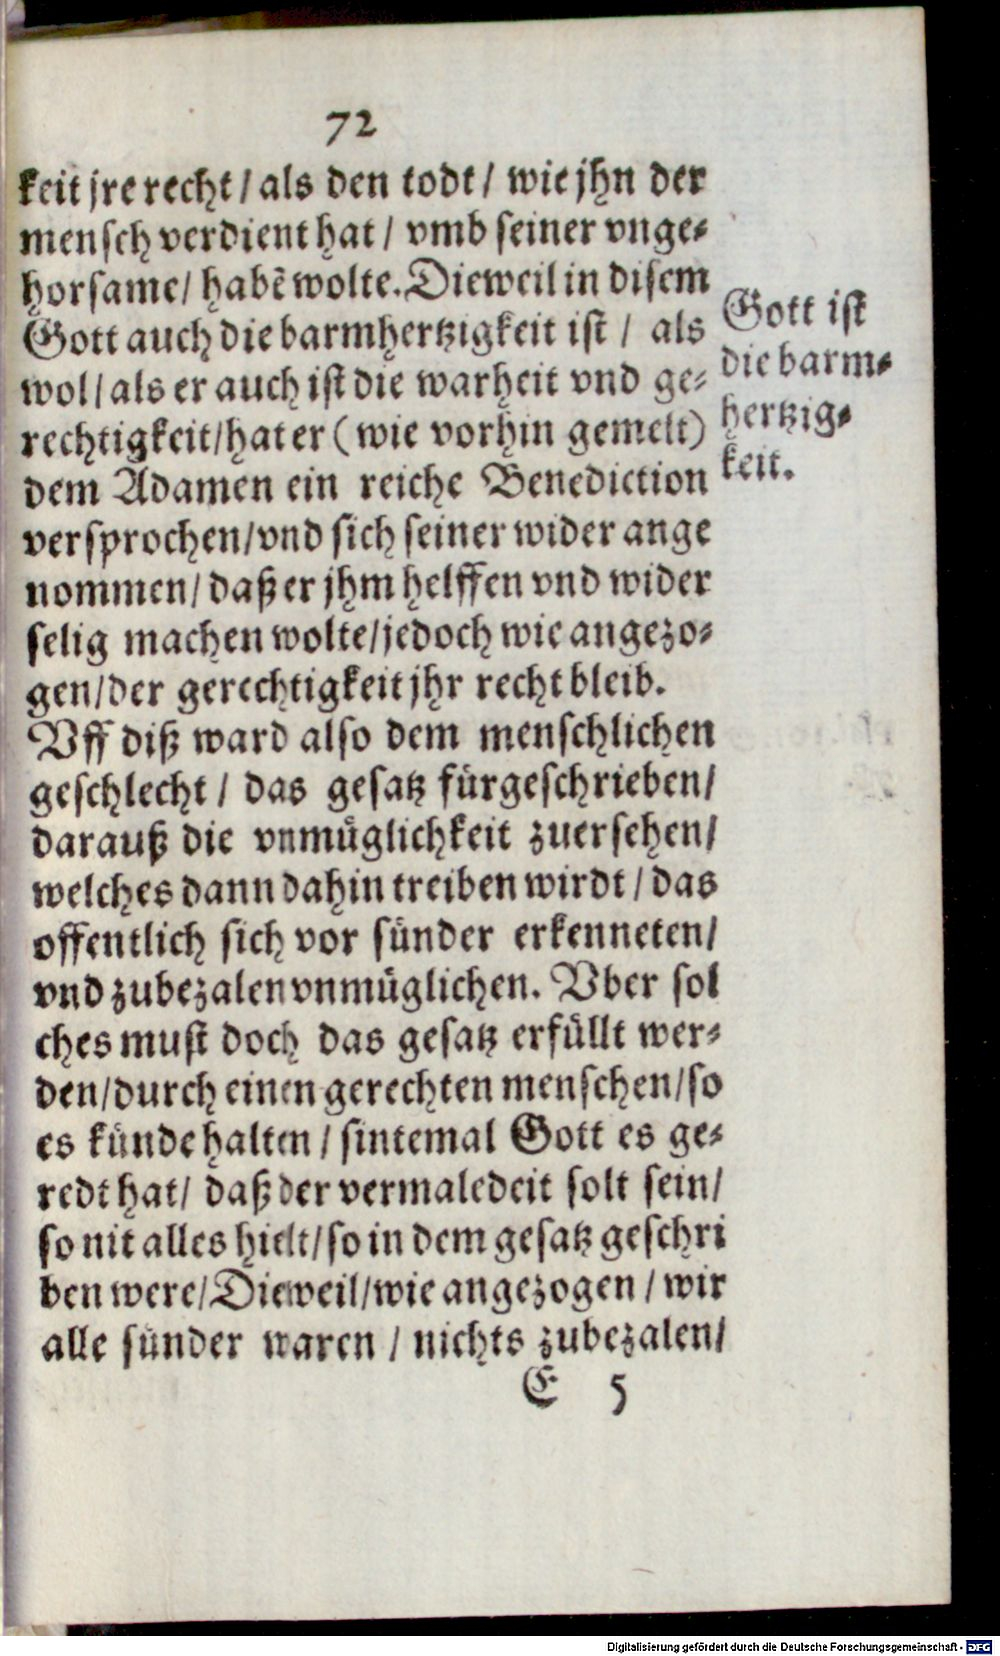 72
keit jre recht / als den todt / wie jhn der
mensch verdient hat / vmb seiner vnge-
horsame / habẽ wolte. Dieweil in disem
Gott auch die barmhertzigkeit ist / als
wol / als er auch ist die warheit vnd ge-
rechtigkeit / hat er ( wie vorhin gemelt )
dem Adamen ein reiche Benediction
versprochen / vnd sich seiner wider ange
nommen / daß er jhm helffen vnd wider
selig machen wolte / jedoch wie angezo-
gen / der gerechtigkeit jhr recht bleib.
Vff diß ward also dem menschlichen
geschlecht / das gesatz fürgeschrieben /
darauß die vnmüglichkeit zuersehen /
welches dann dahin treiben wirdt / das
offentlich sich vor sünder erkenneten /
vnd zubezalen vnmüglichen. Vber sol
ches must doch das gesatz erfüllt wer-
den / durch einen gerechten menschen / so
es künde halten / sintemal Gott es ge-
redt hat / daß der vermaledeit solt sein /
so nit alles hielt / so in dem gesatz geschri
ben were / Dieweil / wie angezogen / wir
alle sünder waren / nichts zubezalen /
E 5
Gott ist
die barm-
hertzig-
keit.
Digitalisierung gefördert durch die Deutsche Forschungsgemeinschaft - DFG